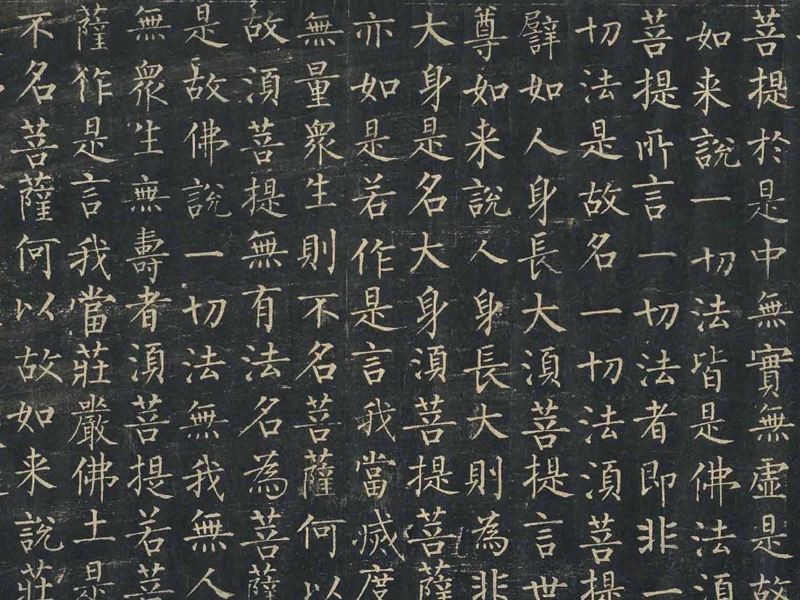 菩提於是中無實無虛是故
如来說一切法皆是佛法湏
菩提所言一切法者即非一
切法是故名一切法湏菩提
譬如人身長大湏菩提言世
尊如来說人身長大則為非
大身是名大身湏菩提菩薩
亦如是若作是言我當滅度
無量衆生則不名菩薩何以
故湏菩提無有法名為菩薩
是故佛說一切法無我無人
無衆生無壽者湏菩提若菩
薩作是言我當莊嚴佛土是
不名菩薩何以故如来說莊